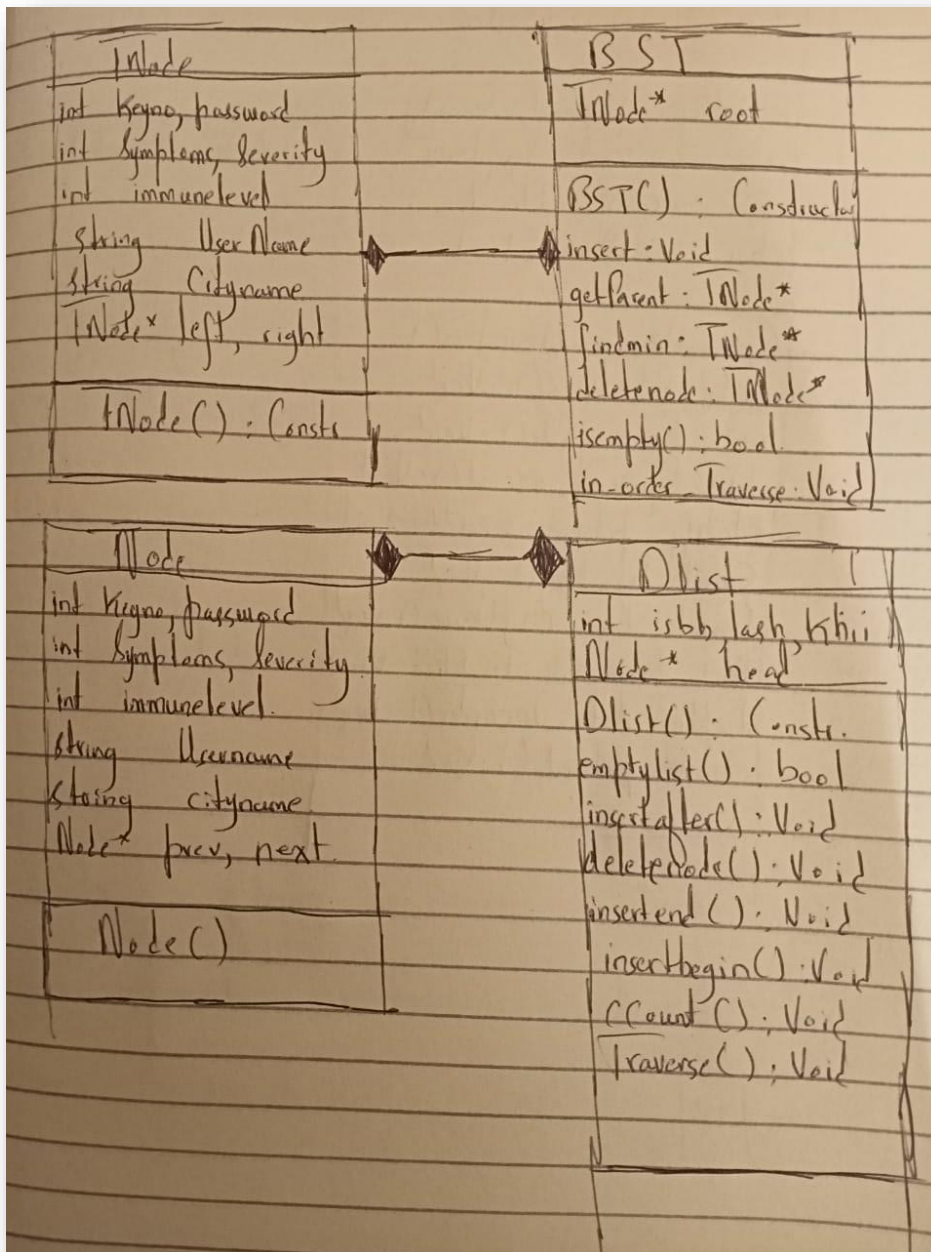 TNode
int Keyno, password
int Symptoms, Severity
int immunelevel
string UserName
string Cityname
TNode* left, right
tNode() : Constr
BST
TNode* root
BST() : Constructor
insert : Void
getParent : TNode*
findmin : TNode*
deletenode : TNode*
isempty() : bool
in-order_Traverse : Void
Node
int Keyno, password
int Symptoms, Severity
int immunelevel
string Username
string cityname
Node* prev, next
Node()
Dlist
int isbb, lash, Khii
Node* head
Dlist() : Constr.
emptylist() : bool
insertafter() : Void
deleteNode() : Void
insertend() : Void
insertbegin() : Void
CCount() : Void
Traverse() : Void